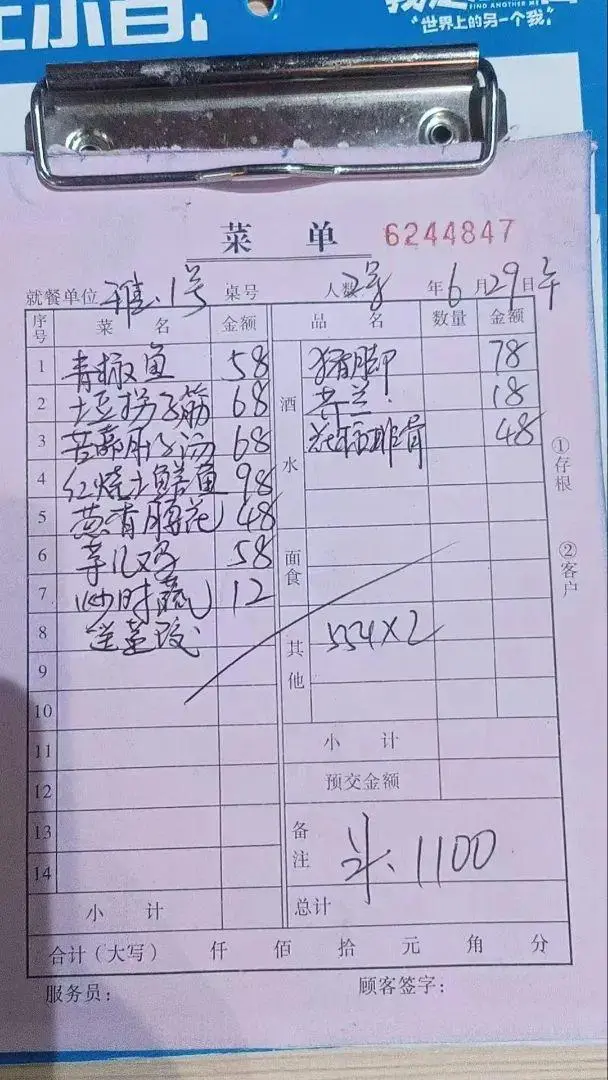 FIND ANOTHER ME
"世界上的另一个我"
菜 单 6244847
就餐单位 雅.1号 桌号 人数 年6月29日午
序号 菜 名 金额 品 名 数量 金额
1 青椒鱼 58 酒水 猪脚 78
2 土豆拐子筋 68 18
3 68 花福排骨 48
4 红烧土鲜鱼 98
5 葱香腰花 48
6 58 面食
7 炒时蔬 12
8 送 其他 554×2
9
10
11 小 计
12 预交金额
13 备注 1100
14
小 计 总计
合计（大写） 仟 佰 拾 元 角 分
服务员： 顾客签字：
①存根
②客户